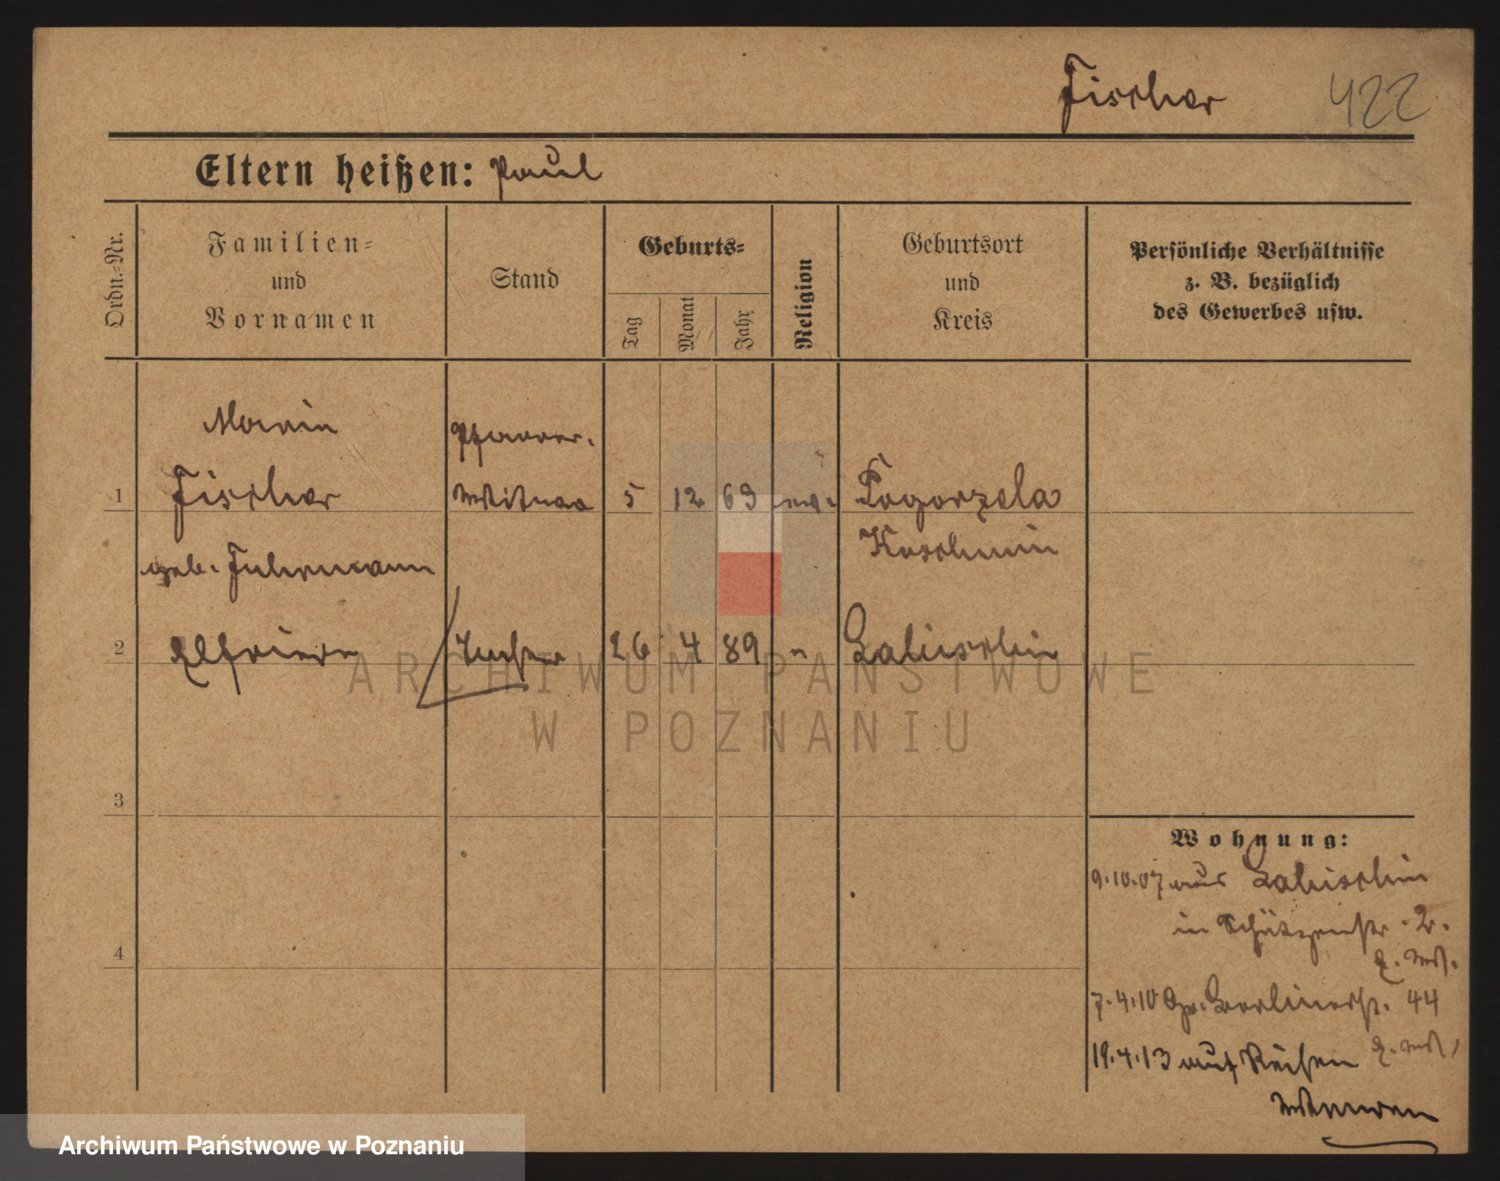 Fischer 422
Eltern heißen: Paul
Ordn.-Nr.
Familien-
und
Vornamen
Stand
Geburts-
Tag
Monat
Jahr
Religion
Geburtsort
und
Kreis
Persönliche Verhältnisse
z. B. bezüglich
des Gewerbes usw.
Pfarrer-
1 Fischer Witwe 5 12 63 ev. Pogorzela
Koschmin
geb. Fuhrmann
2 Elfriede Tochter 26 4 89 " Labischin
3
4
Wohnung:
9.10.07 aus Labischin
in Schützenstr. 2.
7.4.10 Gr. Berlinerstr. 44
19.4.13 auf Reisen
ARCHIWUM PAŃSTWOWE
W POZNANIU
Archiwum Państwowe w Poznaniu